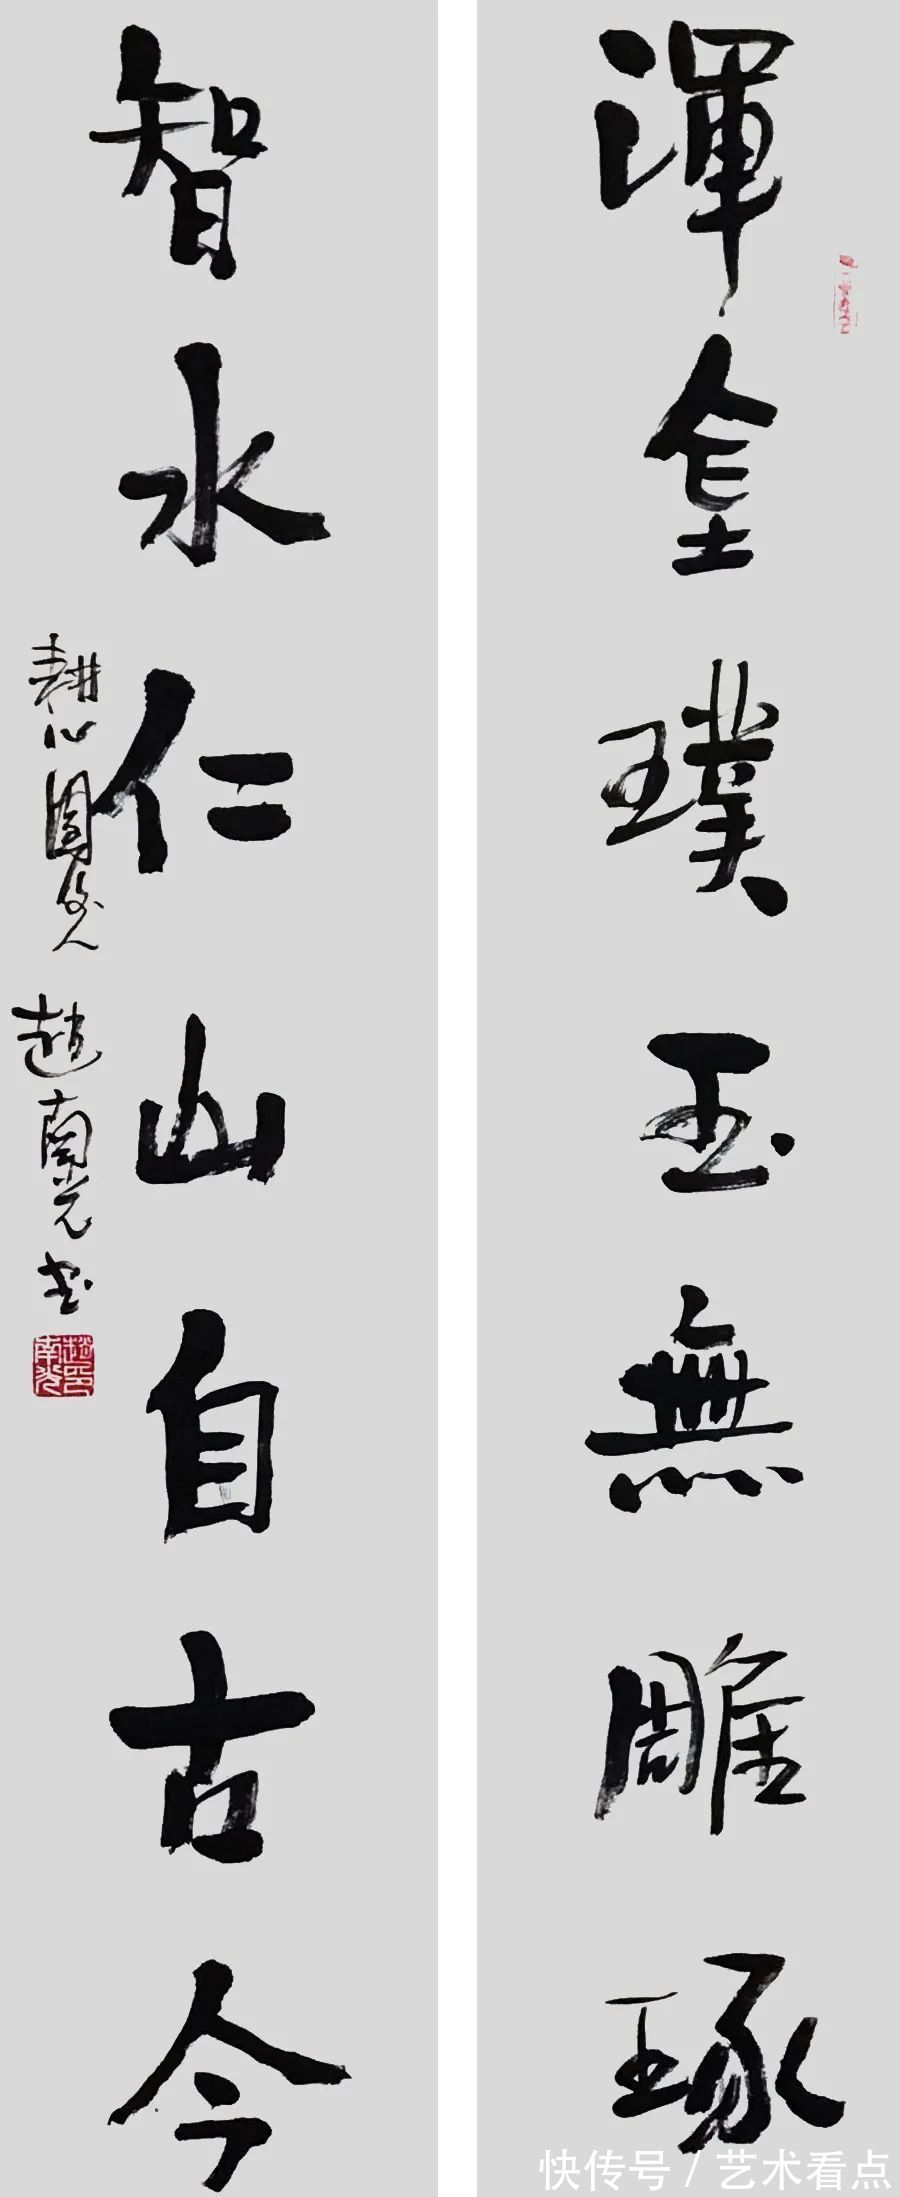 渾金璞玉無雕琢
智水仁山自古今
耕心園人
趙南光书
趙南光印
快传号 / 艺术看点